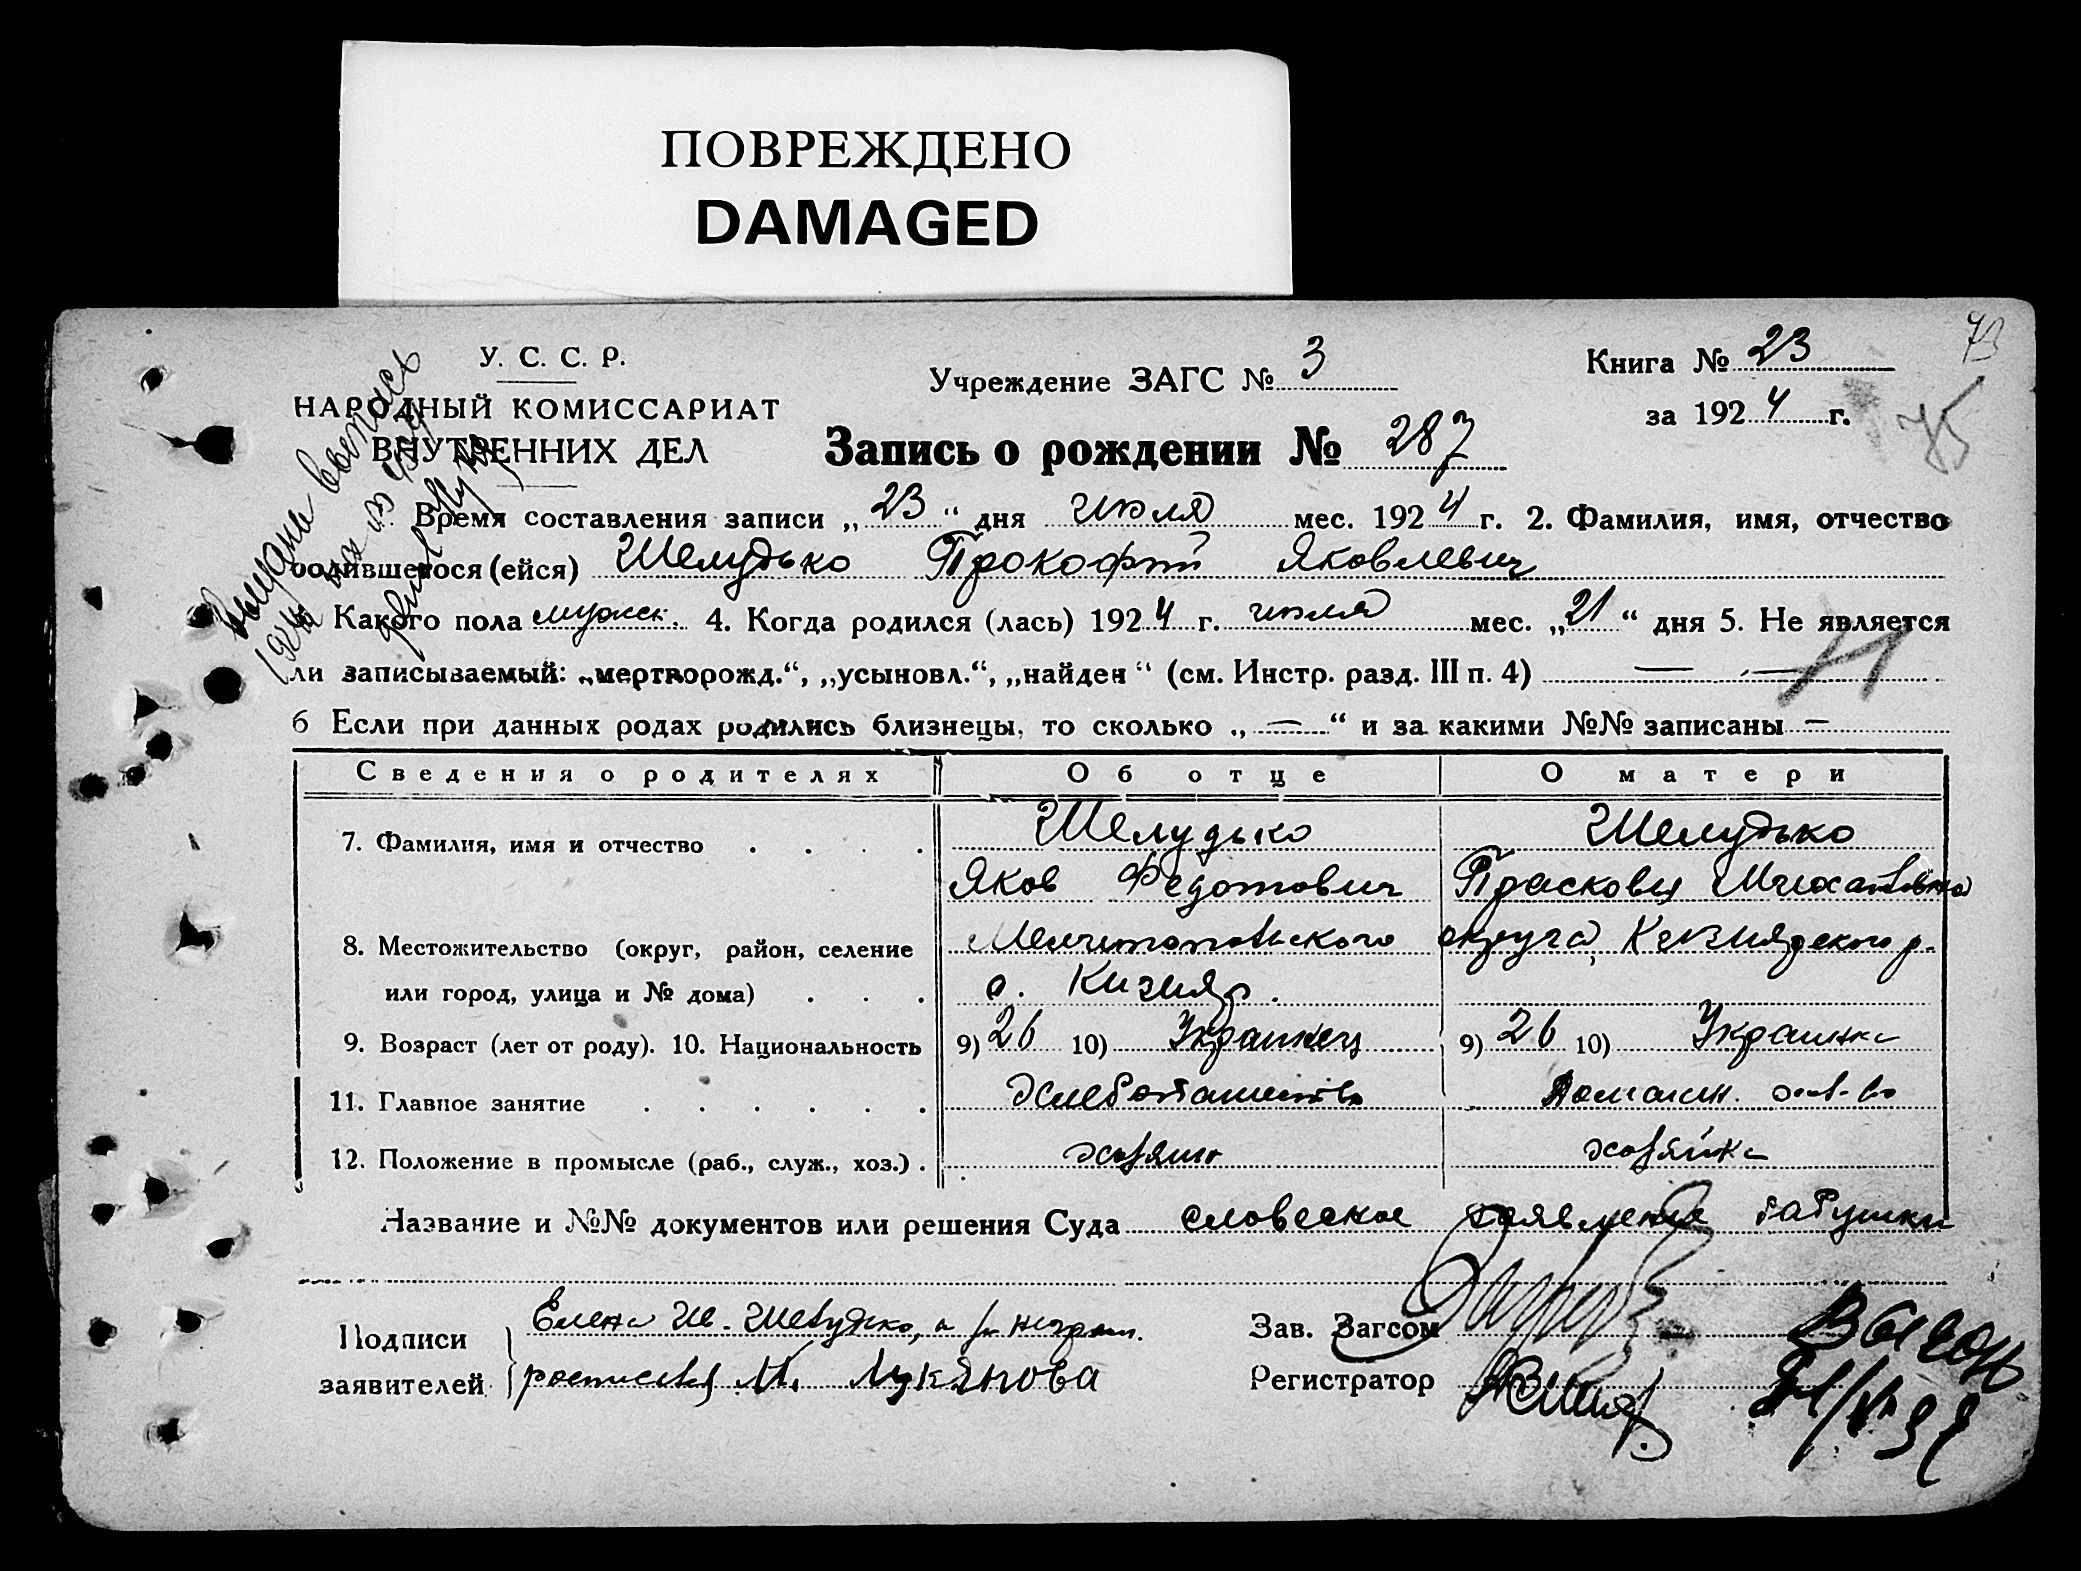 ПОВРЕЖДЕНО
DAMAGED
73
У. С. С. Р.
НАРОДНЫЙ КОМИССАРИАТ
ВНУТРЕННИХ ДЕЛ
Учреждение ЗАГС № 3
Книга № 23
за 1924 г.
75
Запись о рождении № 287
Выдана выпись
Время составления записи „23“ дня июля мес. 1924 г. 2. Фамилия, имя, отчество
родившегося (ейся) Шелудько Прокофий Яковлевич
Какого пола мужск. 4. Когда родился (лась) 1924 г. июля мес. „21“ дня 5. Не является
ли записываемый: „мертворожд.“, „усыновл.“, „найден“ (см. Инстр. разд. III п. 4) — —
6 Если при данных родах родились близнецы, то сколько „—“ и за какими №№ записаны —
Сведения о родителях Об отце О матери
7. Фамилия, имя и отчество . . . . Шелудько Шелудько
Яков Федотович Прасковья Михайловна
8. Местожительство (округ, район, селение Мелитопольского округа, Кизиярского р.
или город, улица и № дома) . . . с. Кизияр.
9. Возраст (лет от роду). 10. Национальность 9) 26 10) Украинец 9) 26 10) Украинка
11. Главное занятие . . . . . . Хлебопашество Домашн. хоз-во
12. Положение в промысле (раб., служ., хоз.) . хозяин хозяйка
Название и №№ документов или решения Суда словеское заявление бабушки
Подписи
заявителей
Елена Шелудько, а неграм.
М. Лукянова
Зав. Загсом
Регистратор